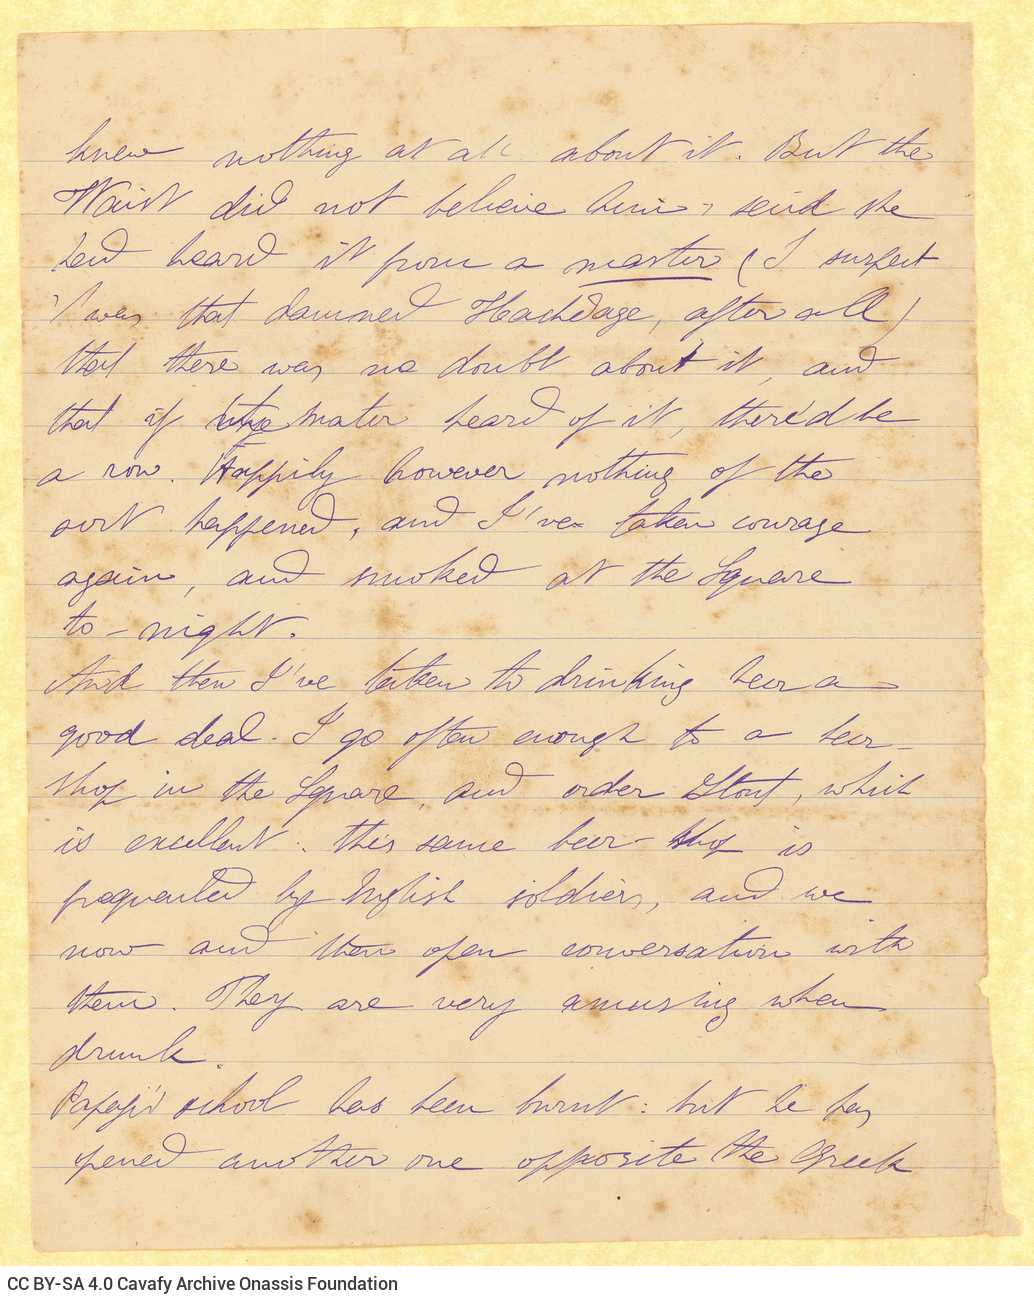 knew nothing at all about it. But the
Waist did not believe him, said she
had heard it from a master (I suspect
'twas that damned Hackdage, after all)
that there was no doubt about it, and
that if the mater heard of it, there'd be
a row. Happily however nothing of the
sort happened, and I've taken courage
again, and smoked at the Square
to-night.
And then I've taken to drinking beer a
good deal. I go often enough to a beer-
shop in the Square, and order Stout, which
is excellent. This same beer-shop is
frequented by English soldiers, and we
now and then open conversation with
them. They are very amusing when
drunk.
school has been burnt: but he has
opened another one opposite the Greek
CC BY-SA 4.0 Cavafy Archive Onassis Foundation